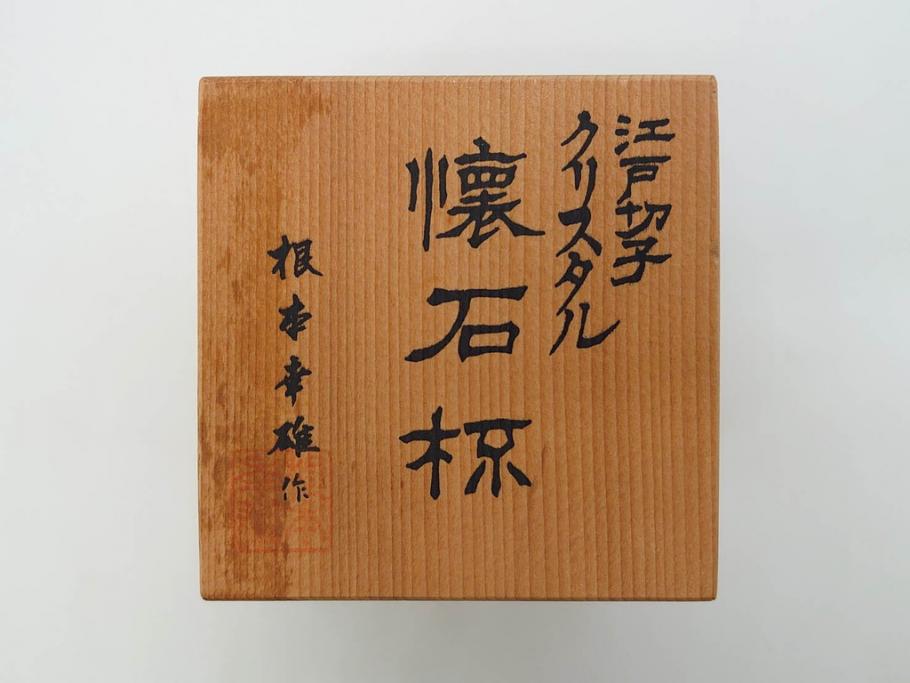 江戸切子
クリスタル
懐石杯
根本幸雄作